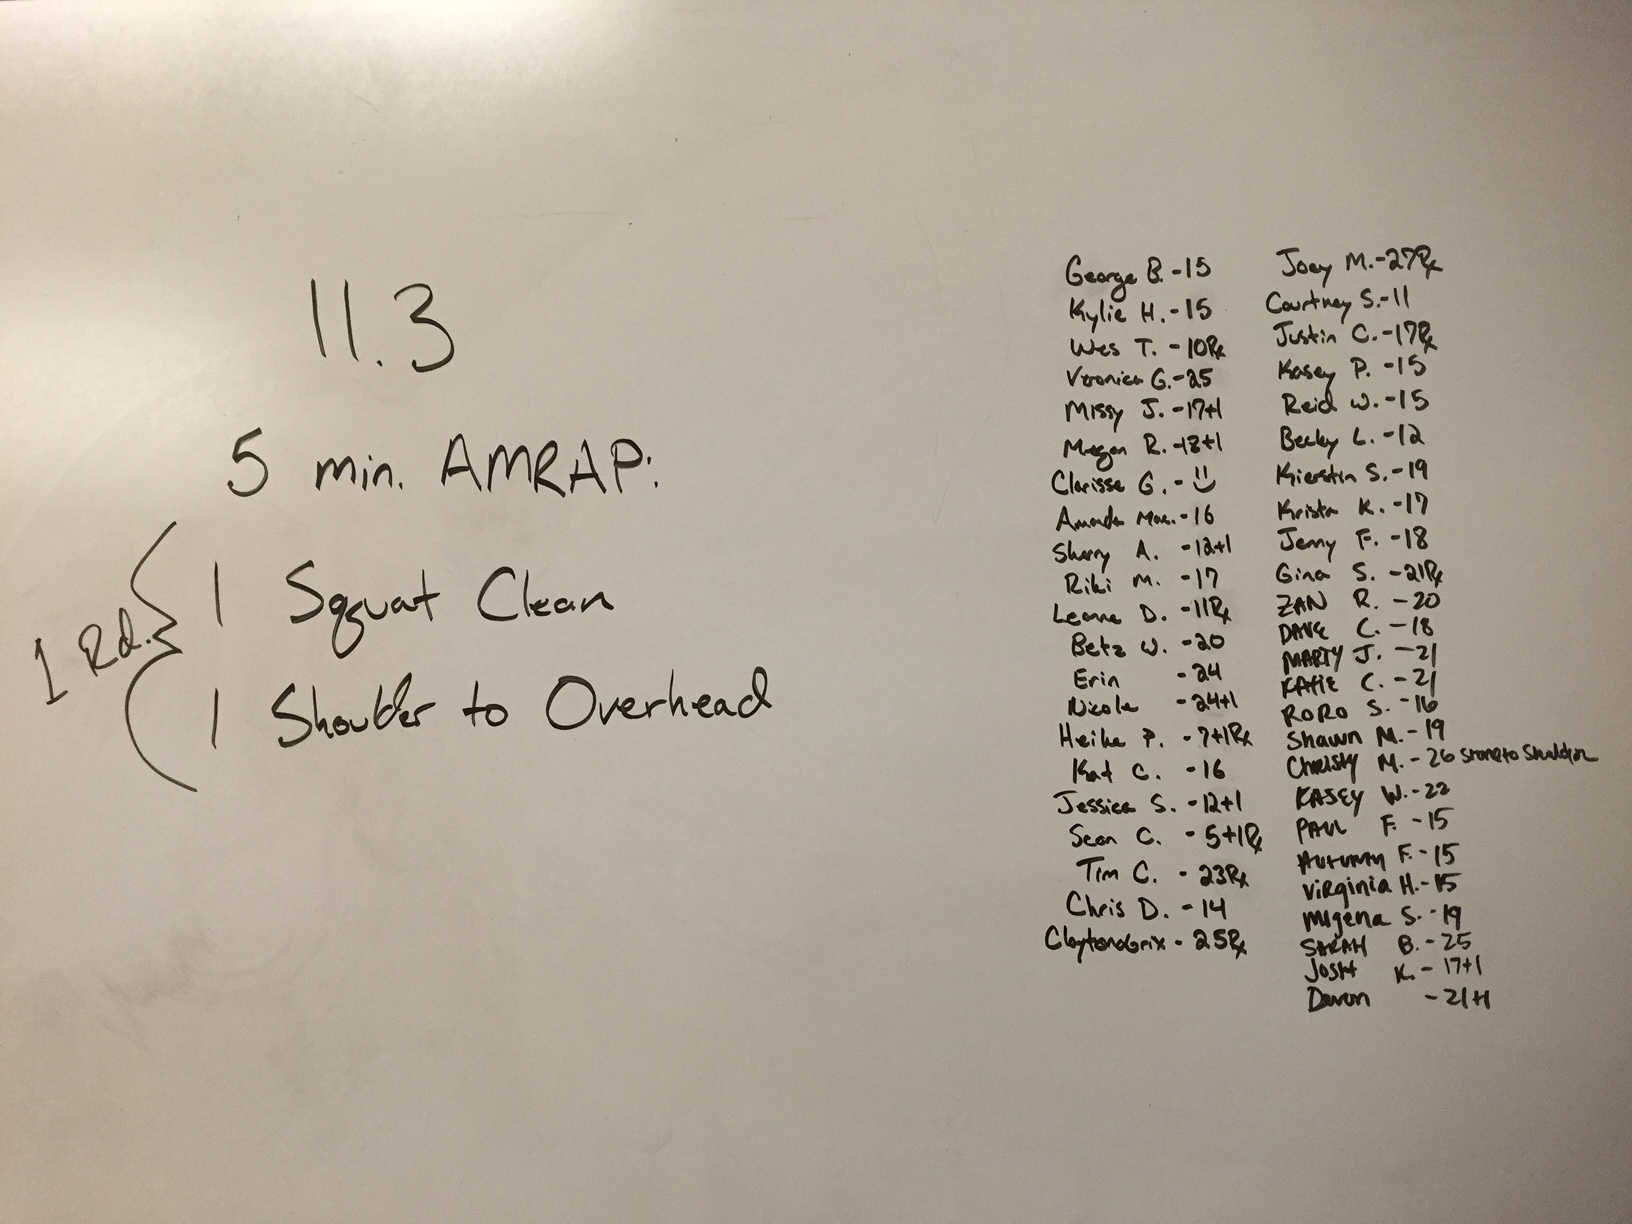 11.3
5 min. AMRAP:
1 Rd.
1 Squat Clean
1 Shoulder to Overhead
George B. - 15
Kylie H. - 15
Wes T. - 10Rx
Veronica G. - 25
Missy J. - 17+1
Megan R. - 18+1
Clarisse G. -
Amanda Mac. - 16
Sherry A. - 12+1
Riki M. - 17
Leanne D. - 11Rx
Betz W. - 20
Erin - 24
Nicole - 24+1
Heike P. - 7+1Rx
Kat C. - 16
Jessica S. - 12+1
Sean C. - 5+1Rx
Tim C. - 23Rx
Chris D. - 14
- 25Rx
Joey M. - 27Rx
Courtney S. - 11
Justin C. - 17Rx
Kasey P. - 15
Reid W. - 15
Becky L. - 12
Kierstin S. - 19
Krista K. - 17
Jenny F. - 18
Gina S. - 21Rx
ZAN R. - 20
DAVE C. - 18
MARTY J. - 21
KATIE C. - 21
RORO S. - 16
Shawn M. - 19
Christy M. - 26 Stone to Shoulder
KASEY W. - 22
PAUL F. - 15
AUTUMN F. - 15
VIRginia H. - 15
Migena S. - 19
SARAH B. - 25
JOSH K. - 17+1
Devon - 21+1